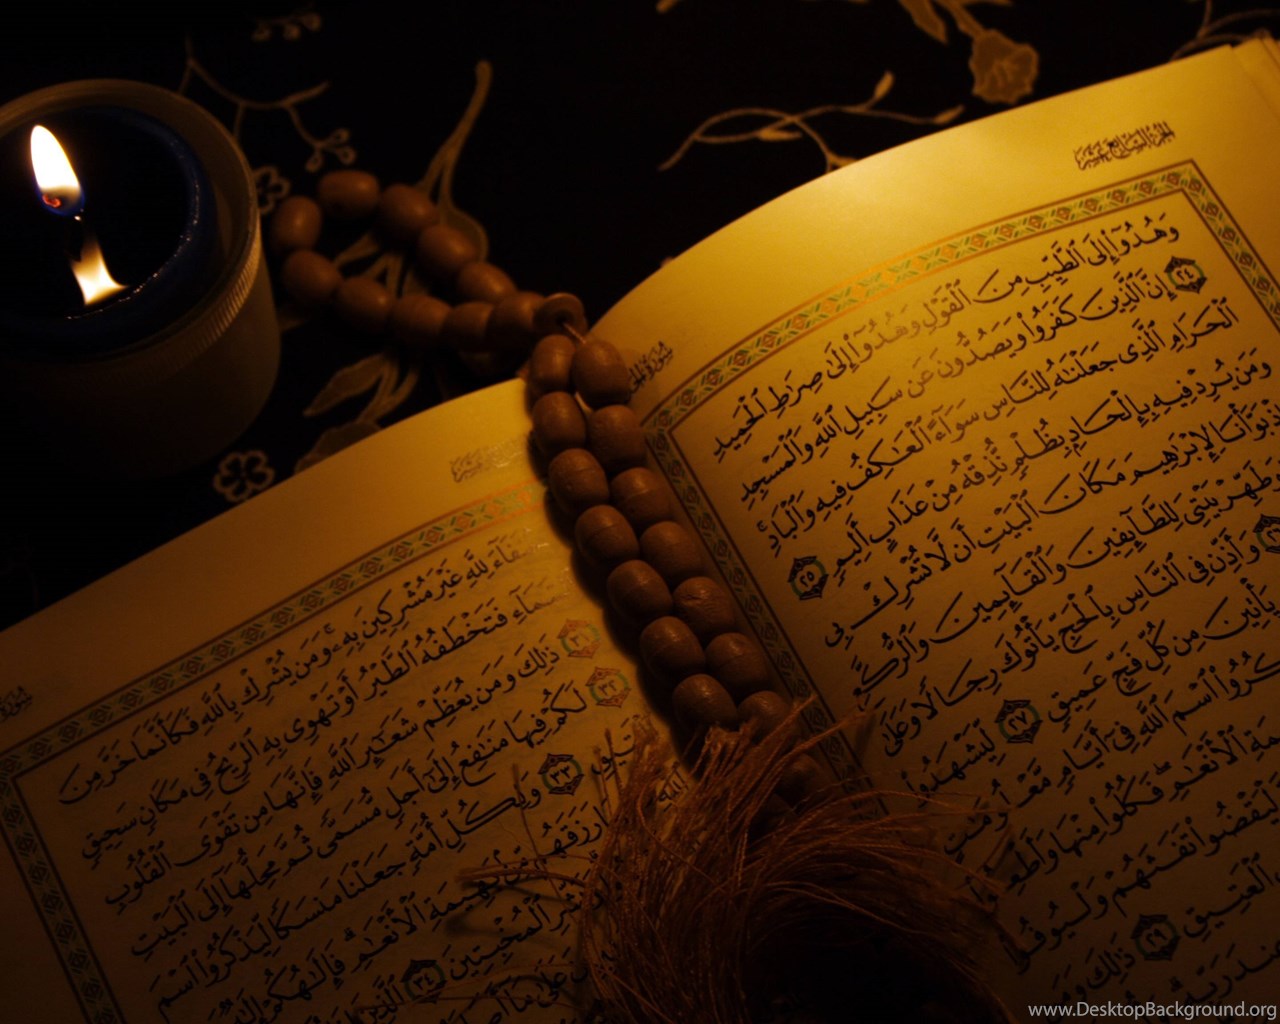 الجزء السابع عشر
وَهُدُوٓا۟ إِلَى ٱلطَّيِّبِ مِنَ ٱلْقَوْلِ وَهُدُوٓا۟ إِلَىٰ صِرَٰطِ ٱلْحَمِيدِ
٢٤ إِنَّ ٱلَّذِينَ كَفَرُوا۟ وَيَصُدُّونَ عَن سَبِيلِ ٱللَّهِ وَٱلْمَسْجِدِ
ٱلْحَرَامِ ٱلَّذِى جَعَلْنَٰهُ لِلنَّاسِ سَوَآءً ٱلْعَٰكِفُ فِيهِ وَٱلْبَادِ
وَمَن يُرِدْ فِيهِ بِإِلْحَادٍۭ بِظُلْمٍ نُّذِقْهُ مِنْ عَذَابٍ أَلِيمٍ ٢٥
بَوَّأْنَا لِإِبْرَٰهِيمَ مَكَانَ ٱلْبَيْتِ أَن لَّا تُشْرِكْ بِى
وَطَهِّرْ بَيْتِىَ لِلطَّآئِفِينَ وَٱلْقَآئِمِينَ وَٱلرُّكَّعِ
وَأَذِّن فِى ٱلنَّاسِ بِٱلْحَجِّ يَأْتُوكَ رِجَالًا وَعَلَىٰ
يَأْتِينَ مِن كُلِّ فَجٍّ عَمِيقٍ ٢٧ لِّيَشْهَدُوا۟
ٱسْمَ ٱللَّهِ فِىٓ أَيَّامٍ
ٱلْأَنْعَٰمِ فَكُلُوا۟ مِنْهَا وَأَطْعِمُوا۟
لْيَقْضُوا۟ تَفَثَهُمْ وَلْيُوفُوا۟
ٱلْعَتِيقِ ٢٩ ذَٰلِكَ
حُنَفَآءَ لِلَّهِ غَيْرَ مُشْرِكِينَ بِهِۦ وَمَن يُشْرِكْ بِٱللَّهِ فَكَأَنَّمَا خَرَّ مِنَ
ٱلسَّمَآءِ فَتَخْطَفُهُ ٱلطَّيْرُ أَوْ تَهْوِى بِهِ ٱلرِّيحُ فِى مَكَانٍ سَحِيقٍ
٣١ ذَٰلِكَ وَمَن يُعَظِّمْ شَعَٰٓئِرَ ٱللَّهِ فَإِنَّهَا مِن تَقْوَى ٱلْقُلُوبِ
٣٢ لَكُمْ فِيهَا مَنَٰفِعُ إِلَىٰٓ أَجَلٍ مُّسَمًّى ثُمَّ مَحِلُّهَآ إِلَى ٱلْبَيْتِ
ٱلْعَتِيقِ ٣٣ وَلِكُلِّ أُمَّةٍ جَعَلْنَا مَنسَكًا لِّيَذْكُرُوا۟ ٱسْمَ
ٱللَّهِ رَزَقَهُم مِّنۢ بَهِيمَةِ ٱلْأَنْعَٰمِ فَإِلَٰهُكُمْ إِلَٰهٌ
ٱلْمُخْبِتِينَ ٣٤ ٱلَّذِينَ
www.DesktopBackground.org